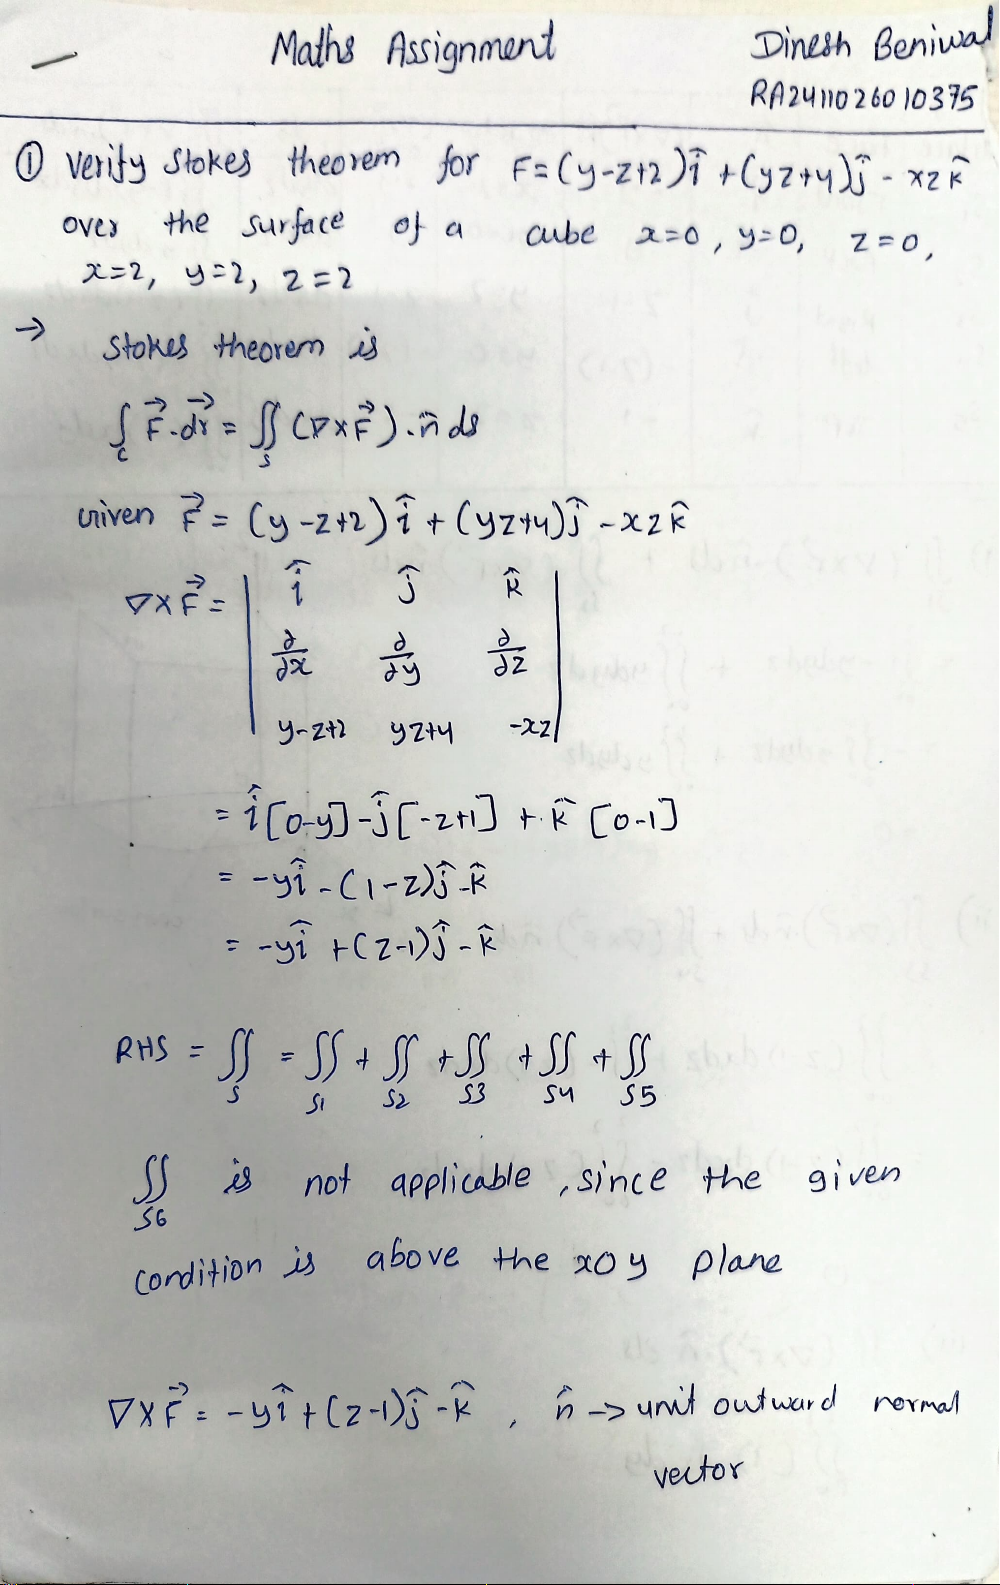 Maths Assignment Dinesh Beniwal
RA2411026010375
① Verify Stokes theorem for F=(y-z+2)î +(yz+4)ĵ - xz k̂
over the surface of a cube x=0, y=0, z=0,
x=2, y=2, z=2
→ Stokes theorem is
∫_c F⃗.dr⃗ = ∬_s (∇×F⃗).n̂ ds
Given F⃗ = (y-z+2)î + (yz+4)ĵ - xz k̂
∇×F⃗ = | î ĵ k̂
∂/∂x ∂/∂y ∂/∂z
y-z+2 yz+4 -xz |
= î[0-y] - ĵ[-z+1] + k̂ [0-1]
= -yî - (1-z)ĵ - k̂
= -yî + (z-1)ĵ - k̂
RHS = ∬_S = ∬_S1 + ∬_S2 + ∬_S3 + ∬_S4 + ∬_S5
∬_S6 is not applicable, since the given
condition is above the xoy plane
∇×F⃗ = -yî + (z-1)ĵ - k̂ , n̂ → unit outward normal
vector